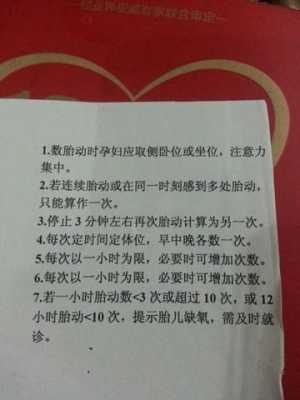 1.数胎动时孕妇应取侧卧位或坐位，注意力
集中。
2.若连续胎动或在同一时刻感到多处胎动，
只能算作一次。
3.停止 3 分钟左右再次胎动计算为另一次。
4.每次定时间定体位，早中晚各数一次。
5.每次以一小时为限，必要时可增加次数。
6.每次以一小时为限，必要时可增加次数。
7.若一小时胎动数<3 次或超过 10 次，或 12
小时胎动<10 次，提示胎儿缺氧，需及时就
诊。